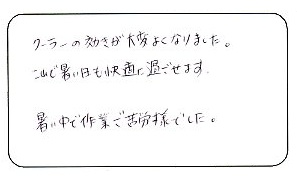 クーラーの効きが大変よくなりました。
これで暑い日も快適に過ごせます.
暑い中で作業ご苦労様でした。